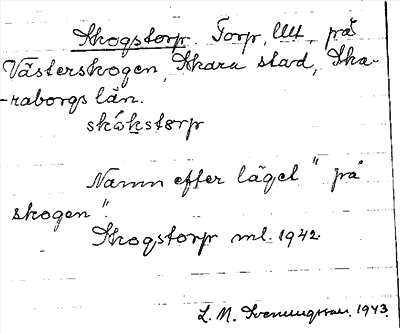 Skogstorp Torp, Utt. på
Västerskogen, Skara stad, Ska-
-raborgs län.
skókstorp
Namn efter läget "på
skogen".
Skogstorp ml. 1942
L. N. Svenungsson. 1943.